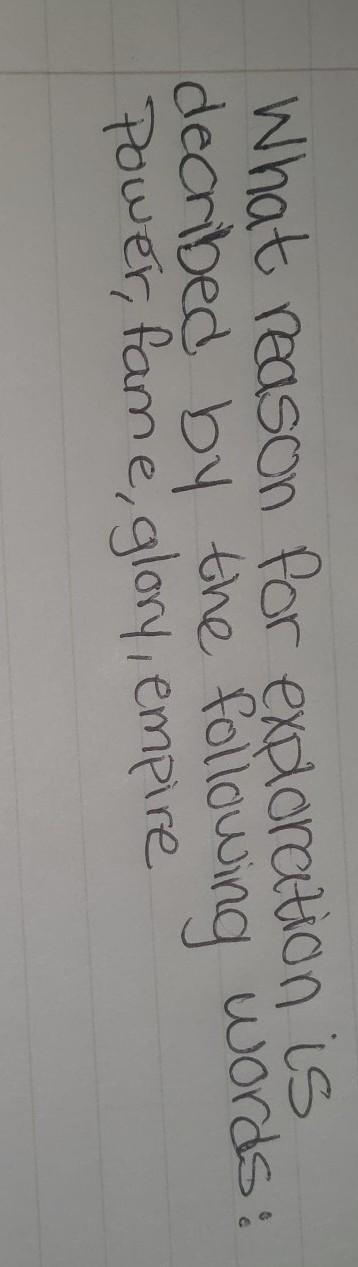 What reason for exploration is
decribed by the following words:
Power, fame, glory, empire